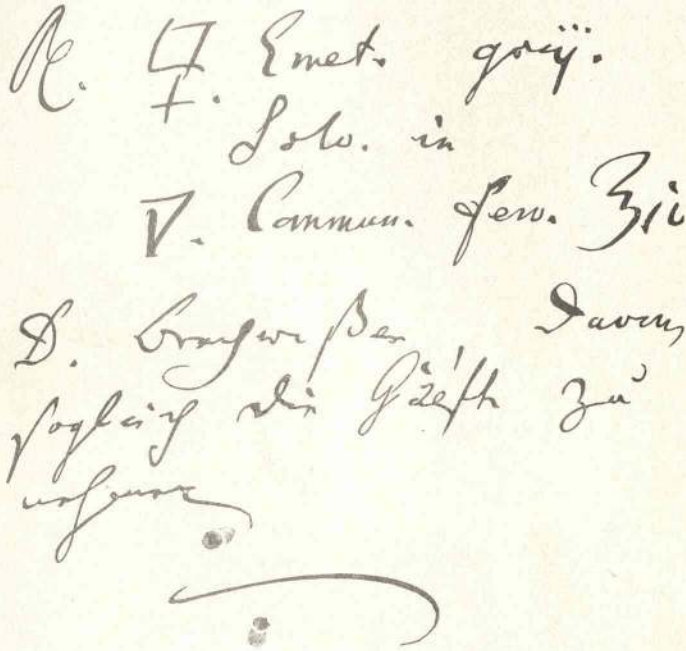 ℞. 🜿. Emet. grij.
Solv. in
🜄. Commun. ferv. ℥iv
D. Brechwaßer, Davon
sogleich die Hälfte zu
nehmen